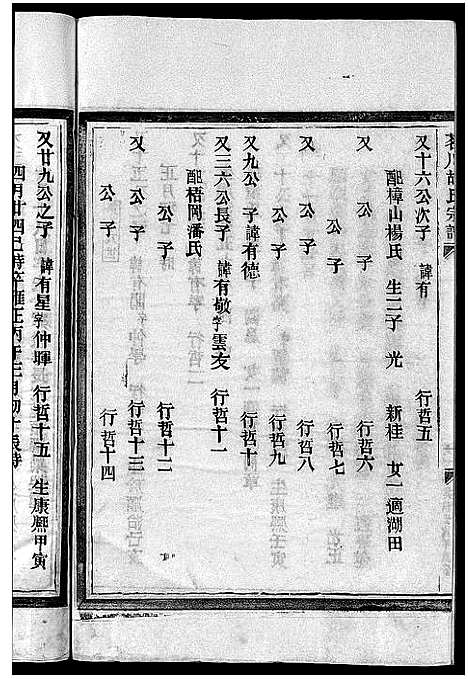 胡氏宗譜
又十六公次子 諱有 行哲五
配樟山楊氏 生二子 光 新桂 女一適湖田
又 公 子 行哲六
公 子 行哲七
又 公 子 行哲八
又 公 子 行哲九
又九公 子 諱有德 行哲十
又三六公長子 諱有敬字雲友 行哲十一
配梧岡潘氏
公 子 行哲十二
又 公 子 行哲十三
公 子 行哲十四
又廿九公之子 諱有星字仲暉 行哲十五 生康熙甲寅
四月廿四巳時卒雍正丙午三月初十辰時